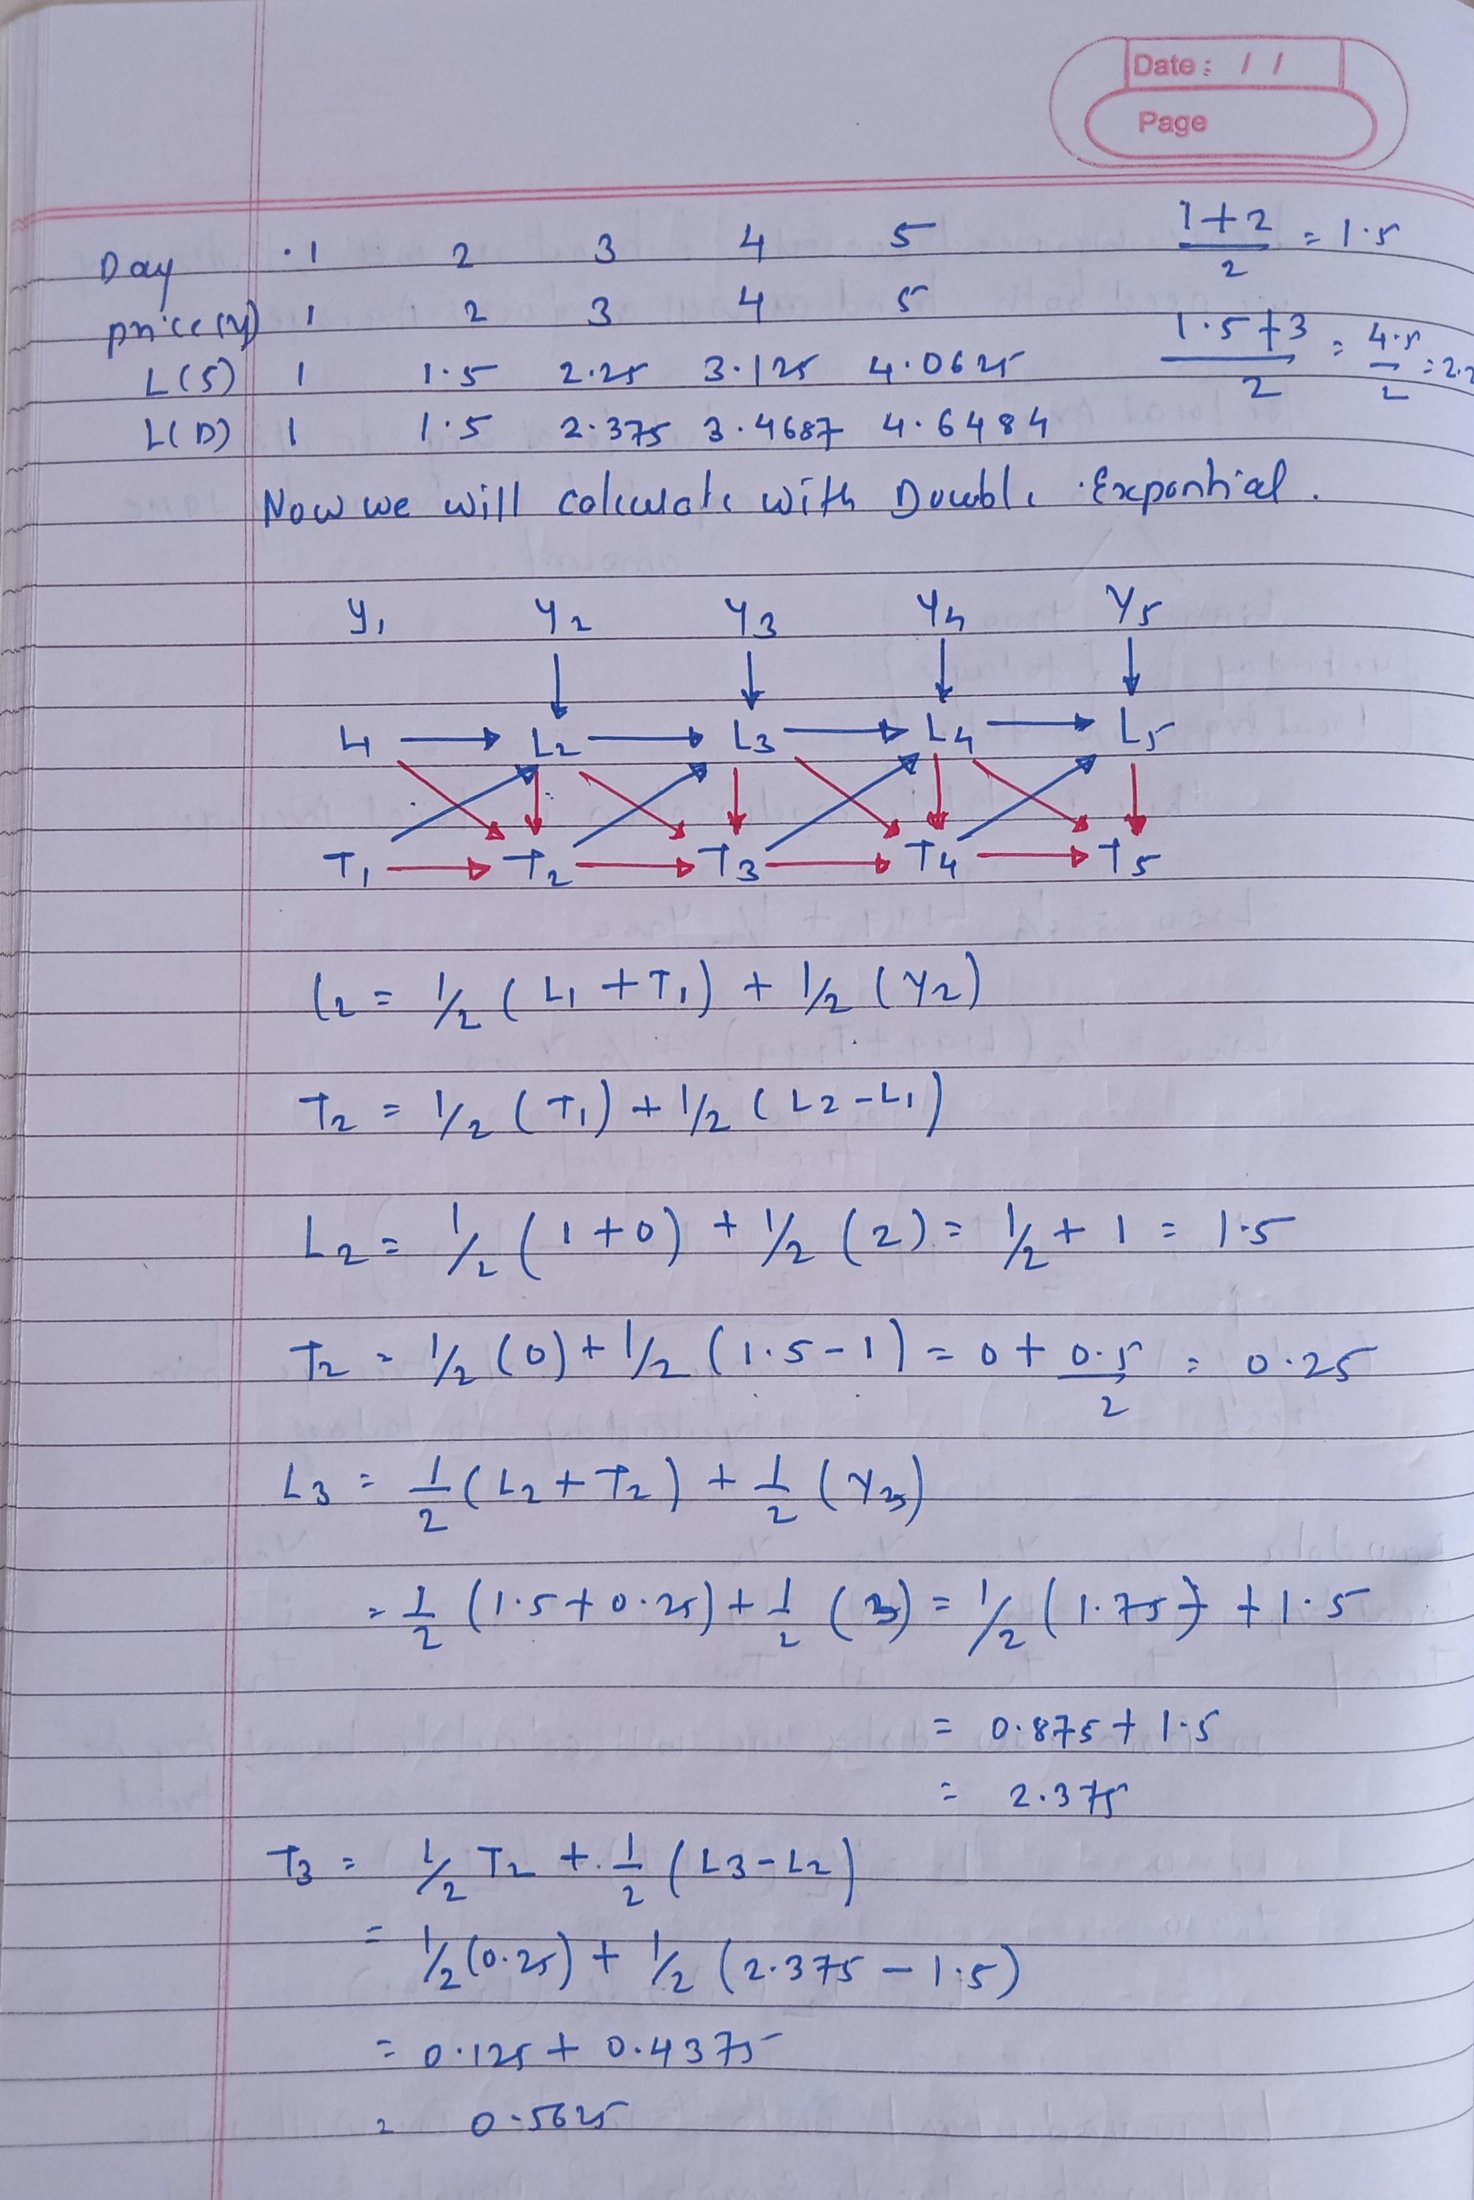 Date : / /
Page
Day . 1 2 3 4 5
price (y) 1 2 3 4 5
L(S) 1 1.5 2.25 3.125 4.0625
L(D) 1 1.5 2.375 3.4687 4.6484
1+2/2 = 1.5
1.5+3/2 = 4.5/2 = 2.2
Now we will calculate with Double Exponhial.
y1 y2 y3 y4 y5
L1 L2 L3 L4 L5
T1 T2 T3 T4 T5
L2 = 1/2 (L1 + T1) + 1/2 (y2)
T2 = 1/2 (T1) + 1/2 (L2 - L1)
L2 = 1/2 (1+0) + 1/2 (2) = 1/2 + 1 = 1.5
T2 = 1/2 (0) + 1/2 (1.5 - 1) = 0 + 0.5/2 = 0.25
L3 = 1/2 (L2 + T2) + 1/2 (y3)
= 1/2 (1.5 + 0.25) + 1/2 (3) = 1/2 (1.75) + 1.5
= 0.875 + 1.5
= 2.375
T3 = 1/2 T2 + 1/2 (L3 - L2)
= 1/2 (0.25) + 1/2 (2.375 - 1.5)
= 0.125 + 0.4375
= 0.5625